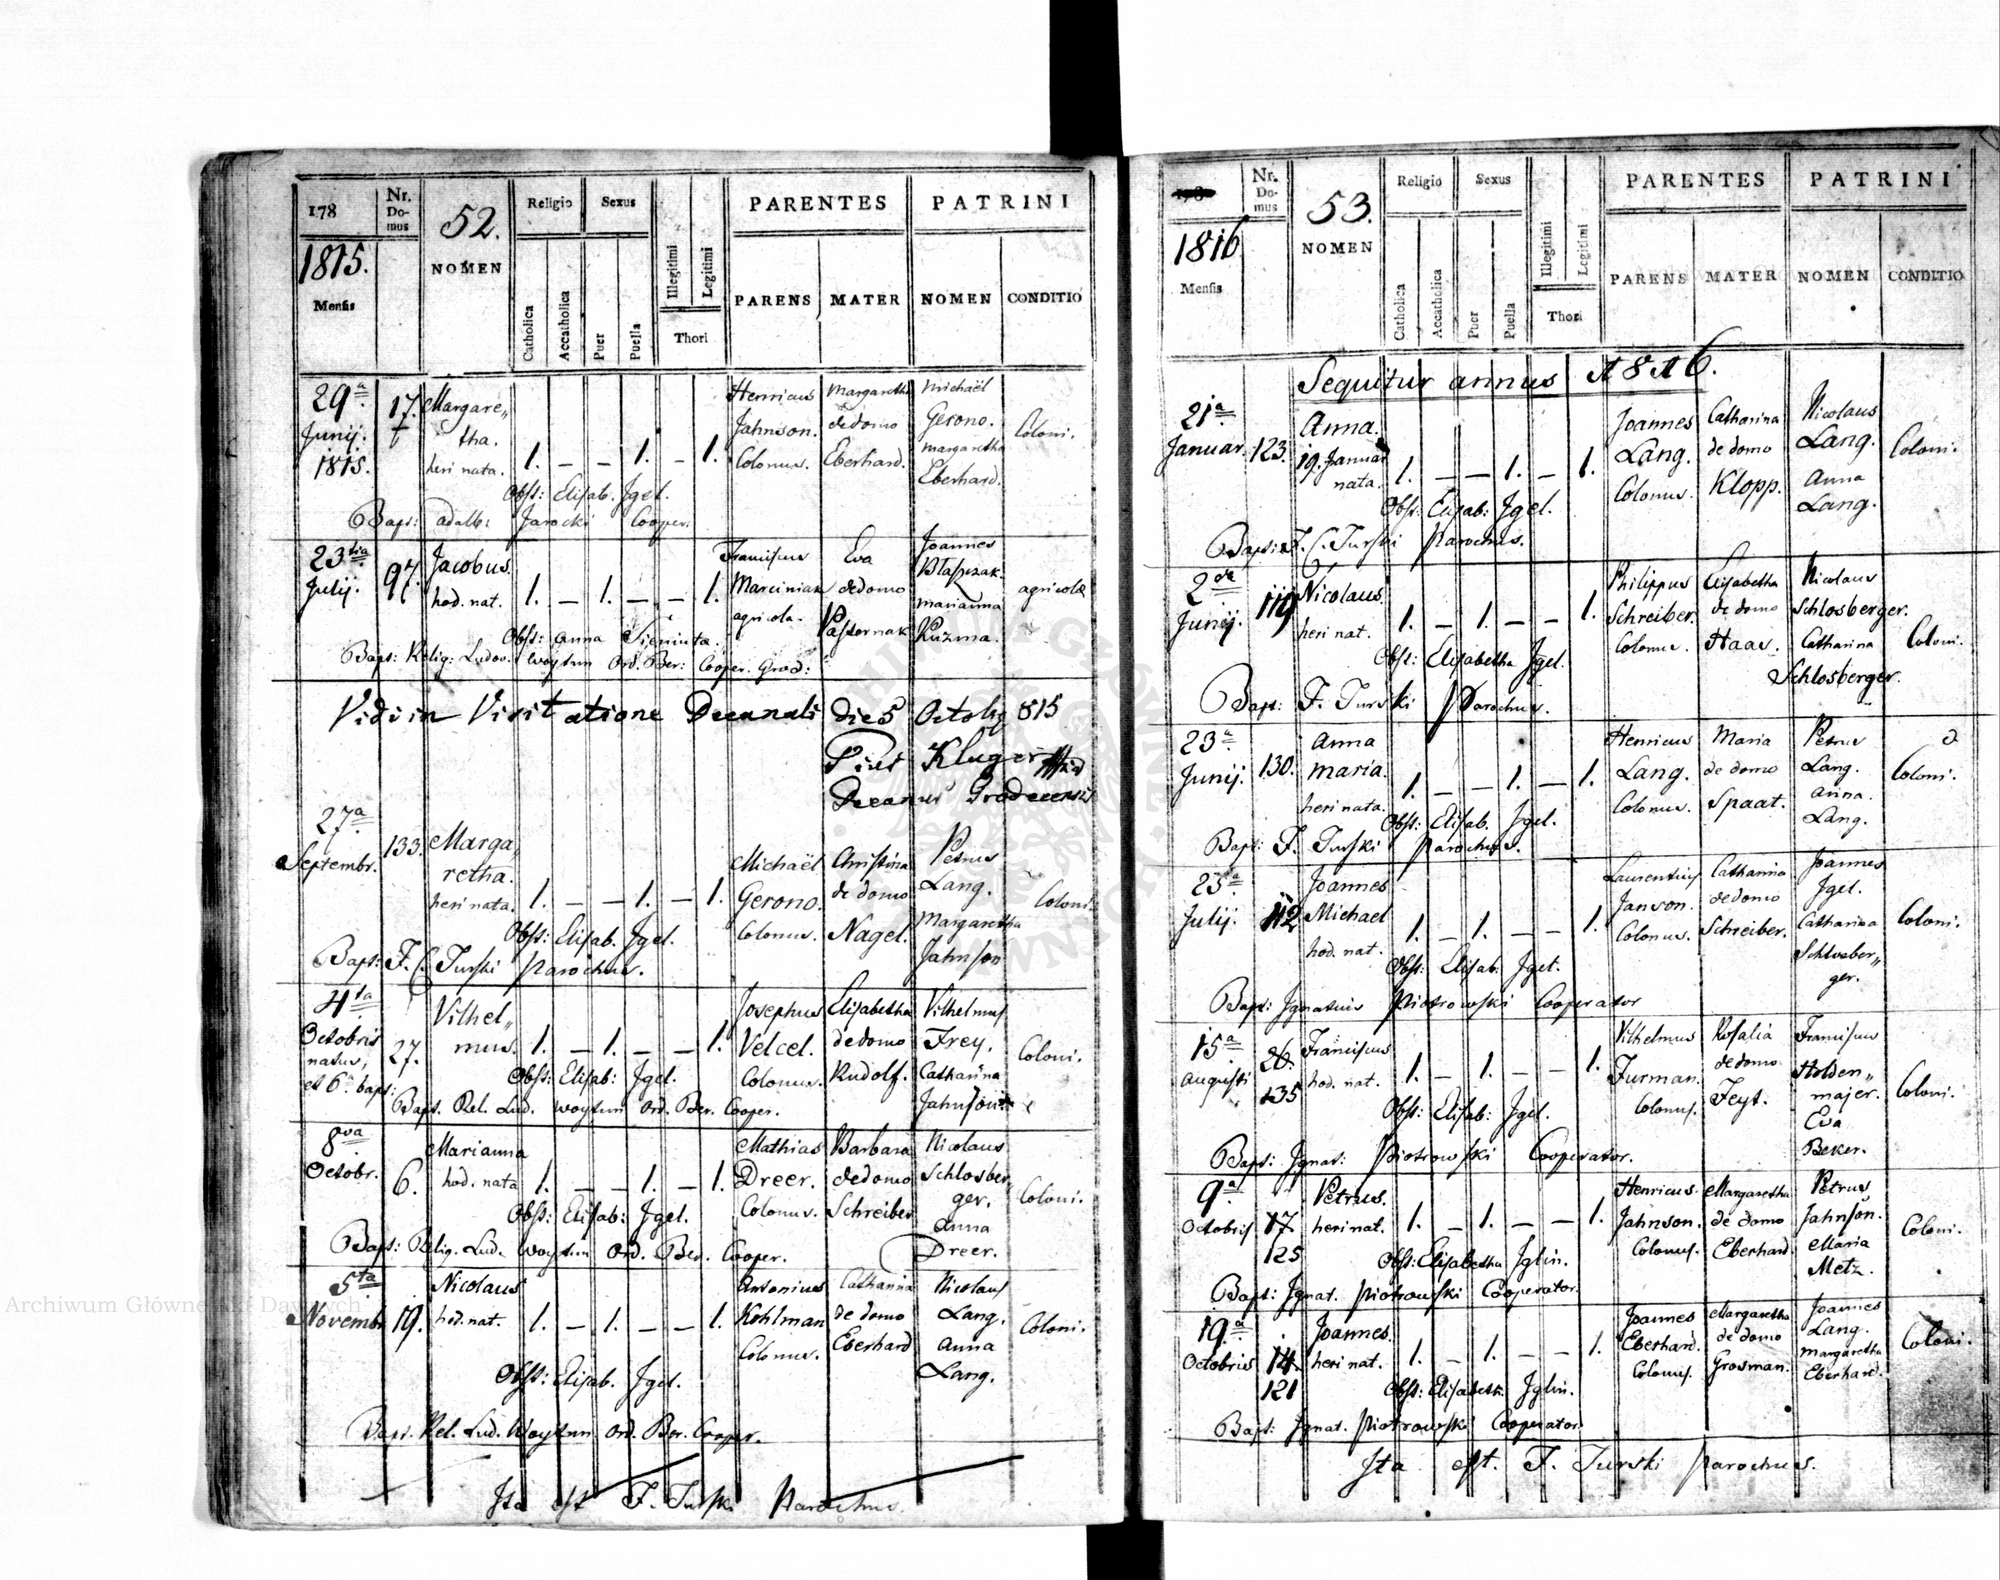 178
Nr. Domus
52.
Religio
Sexus
PARENTES
PATRINI
1815.
NOMEN
Mensis
Catholica
Accatholica
Puer
Puella
Illegitimi
Legitimi
Thori
PARENS
MATER
NOMEN
CONDITIO
29ª 17. Margare„ Henricus Margaretha Michaël
Junij. tha. Jahnson. de domo Gerono. Coloni.
1815. heri nata. 1. – – 1. – 1. Colonus. Eberhard. Margaretha
Eberhard.
Obst: Elisab. Jgel.
Bapt: adalb: Jarocki Cooper:
23tia 97. Jacobus. Franciscus Eva Joannes
Julij. hod. nat. 1. – 1. – – 1. Marciniak de domo Błaszczak. agricolæ
agricola. Pasternak Marianna
Kuzma.
Obst: Anna
Bapt: Relig: Ludov. Woytun Ord. Ber: Cooper. Grod:
Vidi in Visitatione Decanali die 5 Octobr 815
Pius Kluger
Decanus Grodecensis
27ª
Septembr. 133. Marga„ Michaël Christina Petrus
retha. Gerono. de domo Lang. Coloni.
heri nata. 1. – – 1. – 1. Colonus. Nagel. Margaretha
Jahnson
Obst: Elisab. Jgel.
Bapt: F. C. Turski Parochus.
4ta Vilhel„ Josephus Elisabetha Vilhelmus
Octobris 27. mus. 1. – 1. – – 1. Velcel. de domo Frey. Coloni.
natus, Colonus. Rudolf. Catharina
et 6ª bapt: Obst: Elisab: Jgel. Jahnson
Bapt. Rel. Lud. Woytun Ord. Ber. Cooper.
8va Marianna Mathias Barbara Nicolaus
Octobr. 6. hod. nata 1. – – 1. – 1. Dreer. de domo Schlosber„
Colonus. Schreiber ger. Coloni.
Obst: Elisab: Jgel. Anna
Bapt: Relig. Lud. Woytun Ord. Ber. Cooper. Dreer.
5ta Nicolaus Antonius Catharina Nicolaus
Novembr. 19. hod. nat. 1. – 1. – – 1. Kohlman de domo Lang. Coloni.
Colonus. Eberhard Anna
Obst: Elisab. Jgel. Lang.
Bapt. Rel. Lud. Woytun Ord. Ber. Cooper.
Ita est F. Turski Parochus.
Nr. Domus
53.
Religio
Sexus
PARENTES
PATRINI
1816
NOMEN
Mensis
Catholica
Accatholica
Puer
Puella
Illegitimi
Legitimi
Thori
PARENS
MATER
NOMEN
CONDITIO
Sequitur annus 1816.
21ª Anna. Joannes Catharina Nicolaus
Januar. 123. 19. Januar Lang. de domo Lang. Coloni.
nata. 1. – – 1. – 1. Colonus. Klopp. Anna
Obst: Elisab: Jgel. Lang.
Bapt: F. C. Turski Parochus.
2da 119 Nicolaus. Philippus Elisabetha Nicolaus
Junij. heri nat. 1. – 1. – – 1. Schreiber. de domo Schlosberger. Coloni.
Colonus. Haas. Catharina
Obst: Elisabetha Jgel. Schlosberger.
Bapt: F. Turski Parochus.
23ª Anna Henricus Maria Petrus
Junij. 130. Maria. Lang. de domo Lang. Coloni.
heri nata. 1. – – 1. – 1. Colonus. Spaat. Anna.
Obst: Elisab. Jgel. Lang.
Bapt: F. Turski Parochus.
25ª Joannes Laurentius Catharina Joannes
Julij. 112 Michael Janson. de domo Jgel. Coloni.
hod. nat. 1. – 1. – – 1. Colonus. Schreiber. Catharina
Obst: Elisab: Jgel. Schlosber„
ger.
Bapt: Jgnatius Piotrowski Cooperator
15ª 26. Franciscus Vilhelmus Rosalia Franciscus
Augusti 135 hod. nat. 1. – 1. – – 1. Furman. de domo Holden„
Colonus. Feyt. majer. Coloni.
Obst: Elisab: Jgel. Eva
Bapt: Jgnat: Piotrowski Cooperator. Beker.
9ª Petrus. Henricus Margaretha Petrus
Octobris 17. heri nat. 1. – 1. – – 1. Jahnson. de domo Jahnson. Coloni.
125 Colonus. Eberhard. Maria
Obst: Elisabetha Jglin. Metz.
Bapt: Jgnat. Piotrowski Cooperator.
19ª Joannes. Joannes Margaretha Joannes
Octobris 14. heri nat. 1. – 1. – – 1. Eberhard. de domo Lang. Coloni.
121 Colonus. Grosman. Margaretha
Obst: Elisabeth. Jglin. Eberhard.
Bapt: Jgnat. Piotrowski Cooperator
Ita est. F. Turski Parochus.
Archiwum Główne Akt Dawnych